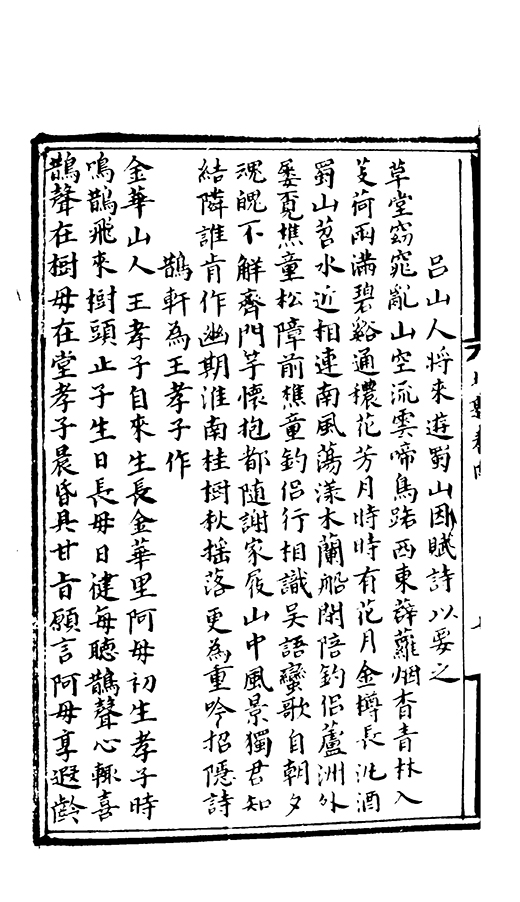 呂山人将来遊蜀山因賦詩以要之
草堂窈窕亂山空流雲啼鳥路西東薜蘿烟杳青林入
芰荷雨滿碧谿通穠花芳月時時有花月金樽長泛酒
蜀山苕水近相連南風蕩漾木蘭船閒陪釣侣蘆洲外
屡覓樵童松障前樵童釣侣行相識吴語蠻歌自朝夕
磈磈不解齊門竽懷抱都随謝家屐山中風景獨君知
結隣誰肯作幽期淮南桂樹秋摇落更為重吟招隱詩
鵲軒為王孝子作
金華山人王孝子自來生長金華里阿母初生孝子時
鳴鵲飛來樹頭止子生日長母日健每聽鵲聲心輒喜
鵲聲在樹母在堂孝子晨昏具甘旨願言阿母享遐齡